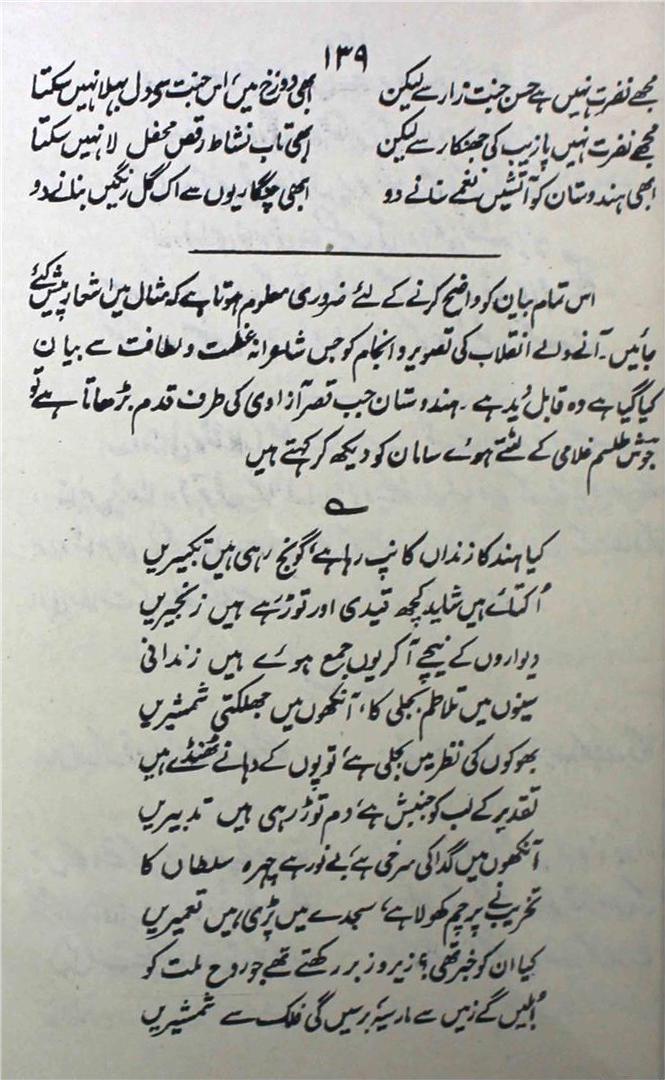 ۱۳۹
مجھے نفرت نہیں ہے حسن جنت زار سے لیکن ابھی دوزخ میں اس جنت سے دل بہلا نہیں سکتا
مجھے نفرت نہیں پازیب کی جھنکار سے لیکن ابھی تاب نشاط رقص محفل لا نہیں سکتا
ابھی ہندوستان کو آتشیں نغمے سنانے دو ابھی چنگاریوں سے اک گل رنگیں بنانے دو
اس تمام بیان کو واضح کرنے کے لئے ضروری معلوم ہوتا ہے کہ مثال میں اشعار پیش کئے
جائیں۔ آنے والے انقلاب کی تصویر و انجام کو جس شاعرانہ عظمت و لطافت سے بیان
کیا گیا ہے وہ قابل دید ہے۔ ہندوستان جب قصر آزادی کی طرف قدم بڑھاتا ہے تو
جوش طلسم غلامی کے لٹتے ہوئے سامان کو دیکھ کر کہتے ہیں
کیا ہند کا زنداں کانپ رہا ہے، گونج رہی ہیں تکبیریں
اُکتائے ہیں شاید کچھ قیدی اور توڑ رہے ہیں زنجیریں
دیواروں کے نیچے آ کر یوں جمع ہوئے ہیں زندانی
سینوں میں تلاطم بجلی کا، آنکھوں میں جھلکتی شمشیریں
بھوکوں کی نظر میں بجلی ہے، توپوں کے دہانے ٹھنڈے ہیں
تقدیر کے لب کو جنبش ہے، دم توڑ رہی ہیں تدبیریں
آنکھوں میں گدا کی سرخی ہے، بے نور ہے چہرہ سلطاں کا
تخریب نے پرچم کھولا ہے، سجدے میں پڑی ہیں تعمیریں
کیا ان کو خبر تھی؟ زیر و زبر رکھتے تھے جو روح ملت کو
اُبلیں گے زمیں سے مار سیہ، برسیں گی فلک سے شمشیریں